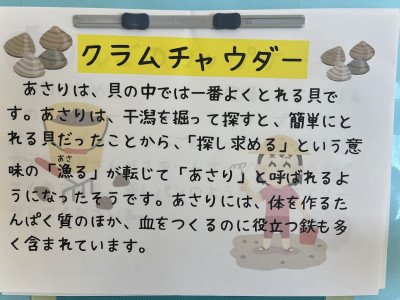 クラムチャウダー
あさりは、貝の中では一番よくとれる貝で
す。あさりは、干潟を掘って探すと、簡単にと
れる貝だったことから、「探し求める」という意
味の「漁る」が転じて「あさり」と呼ばれるよ
うになったそうです。あさりには、体を作るた
んぱく質のほか、血をつくるのに役立つ鉄も多
く含まれています。